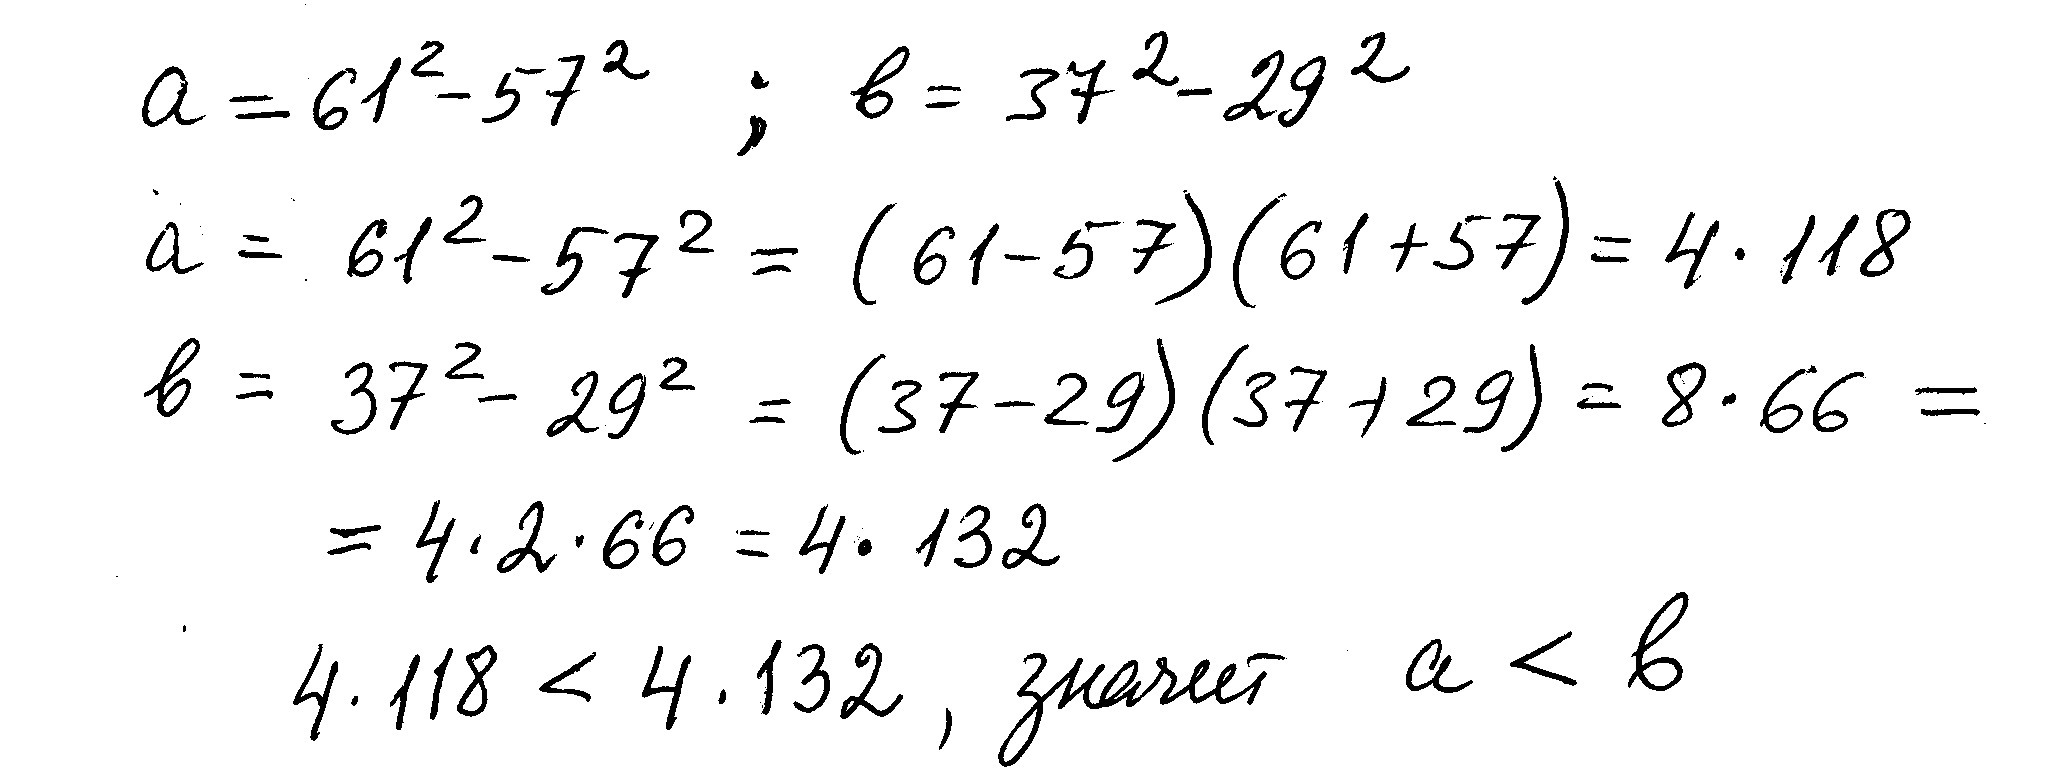 a = 61² - 57² ; в = 37² - 29²
a = 61² - 57² = (61 - 57)(61 + 57) = 4 · 118
в = 37² - 29² = (37 - 29)(37 + 29) = 8 · 66 =
= 4 · 2 · 66 = 4 · 132
4 · 118 < 4 · 132 , значит a < в